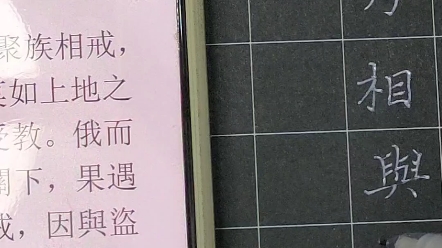 聚族相戒，
如上地之
教。俄而
下，果遇
，因與盜
相
與